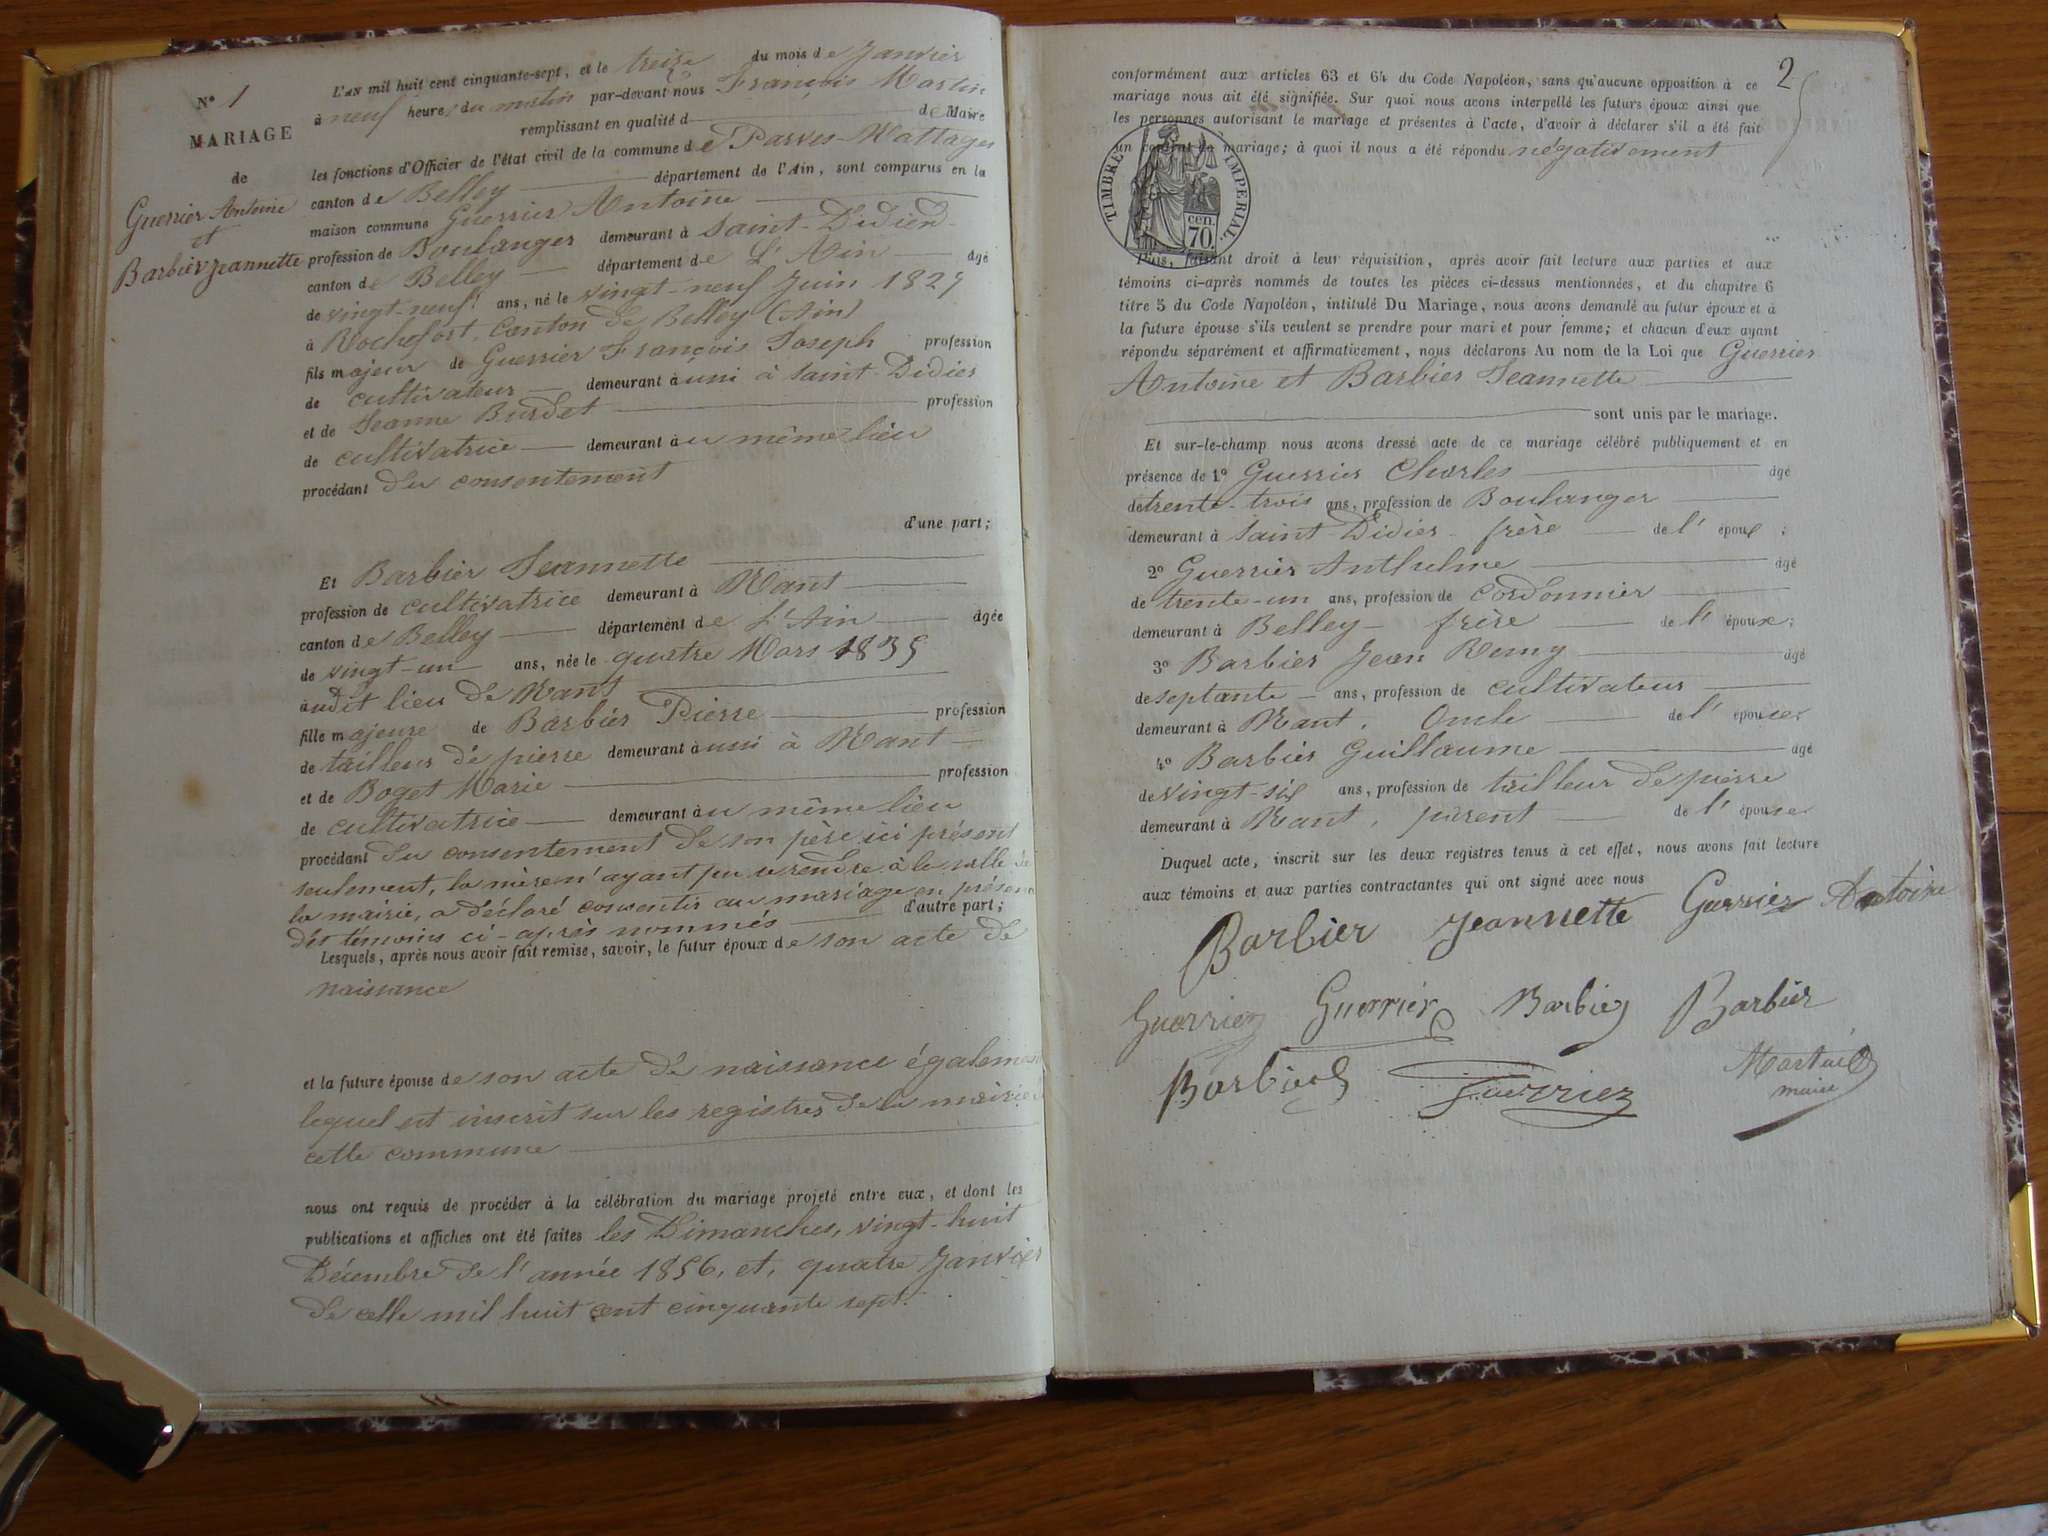 N° 1
MARIAGE
de
Guerrier Antoine
et
Barbier Jeannette
L'AN mil huit cent cinquante-sept, et le treize du mois de Janvier
à neuf heures du matin par-devant nous François Martin
remplissant en qualité de Maire
les fonctions d'Officier de l'état civil de la commune de Parves-Nattages
canton de Belley département de l'Ain, sont comparus en la
maison commune Guerrier Antoine
profession de Boulanger demeurant à Saint-Didier
canton de Belley département de L'Ain âgé
de vingt-neuf ans, né le vingt-neuf Juin 1827
à Rochefort, Canton de Belley (Ain)
fils majeur de Guerrier François Joseph profession
de cultivateur demeurant à uni à Saint-Didier
et de Jeanne Burdet profession
de cultivatrice demeurant à u même lieu
procédant du consentement
d'une part;
Et Barbier Jeannette
profession de cultivatrice demeurant à Nant
canton de Belley département de L'Ain âgée
de vingt-un ans, née le quatre Mars 1835
audit lieu de Nant
fille majeure de Barbier Pierre profession
de tailleur de pierre demeurant à uni à Nant
et de Boget Marie profession
de cultivatrice demeurant à u même lieu
procédant du consentement de son père ici présent
seulement, la mère n'ayant pu se rendre à la salle de
la mairie, a déclaré consentir au mariage en présence
des témoins ci-après nommés d'autre part;
Lesquels, après nous avoir fait remise, savoir, le futur époux de son acte de
naissance
et la future épouse de son acte de naissance également
lequel est inscrit sur les registres de la mairie de
cette commune
nous ont requis de procéder à la célébration du mariage projeté entre eux, et dont les
publications et affiches ont été faites les Dimanches, vingt-huit
Décembre de l'année 1856, et, quatre Janvier
de celle mil huit cent cinquante sept.
2
conformément aux articles 63 et 64 du Code Napoléon, sans qu'aucune opposition à ce
mariage nous ait été signifiée. Sur quoi nous avons interpellé les futurs époux ainsi que
les personnes autorisant le mariage et présentes à l'acte, d'avoir à déclarer s'il a été fait
un contrat de mariage; à quoi il nous a été répondu négativement
TIMBRE IMPERIAL
cen.
70.
Puis, faisant droit à leur réquisition, après avoir fait lecture aux parties et aux
témoins ci-après nommés de toutes les pièces ci-dessus mentionnées, et du chapitre 6
titre 5 du Code Napoléon, intitulé Du Mariage, nous avons demandé au futur époux et à
la future épouse s'ils veulent se prendre pour mari et pour femme; et chacun d'eux ayant
répondu séparément et affirmativement, nous déclarons Au nom de la Loi que Guerrier
Antoine et Barbier Jeannette
sont unis par le mariage.
Et sur-le-champ nous avons dressé acte de ce mariage célébré publiquement et en
présence de 1° Guerrier Charles âgé
de trente-trois ans, profession de Boulanger
demeurant à Saint-Didier frère de l'époux;
2° Guerrier Anthelme âgé
de trente-un ans, profession de cordonnier
demeurant à Belley frère de l'époux;
3° Barbier Jean Remy âgé
de septante ans, profession de cultivateur
demeurant à Nant, Oncle de l'épouse
4° Barbier Guillaume âgé
de vingt-six ans, profession de tailleur de pierre
demeurant à Nant, parent de l'épouse
Duquel acte, inscrit sur les deux registres tenus à cet effet, nous avons fait lecture
aux témoins et aux parties contractantes qui ont signé avec nous
Barbier Jeannette Guerrier Antoine
Guerrier Guerrier Barbier Barbier
Barbier Guerrier Martin
maire